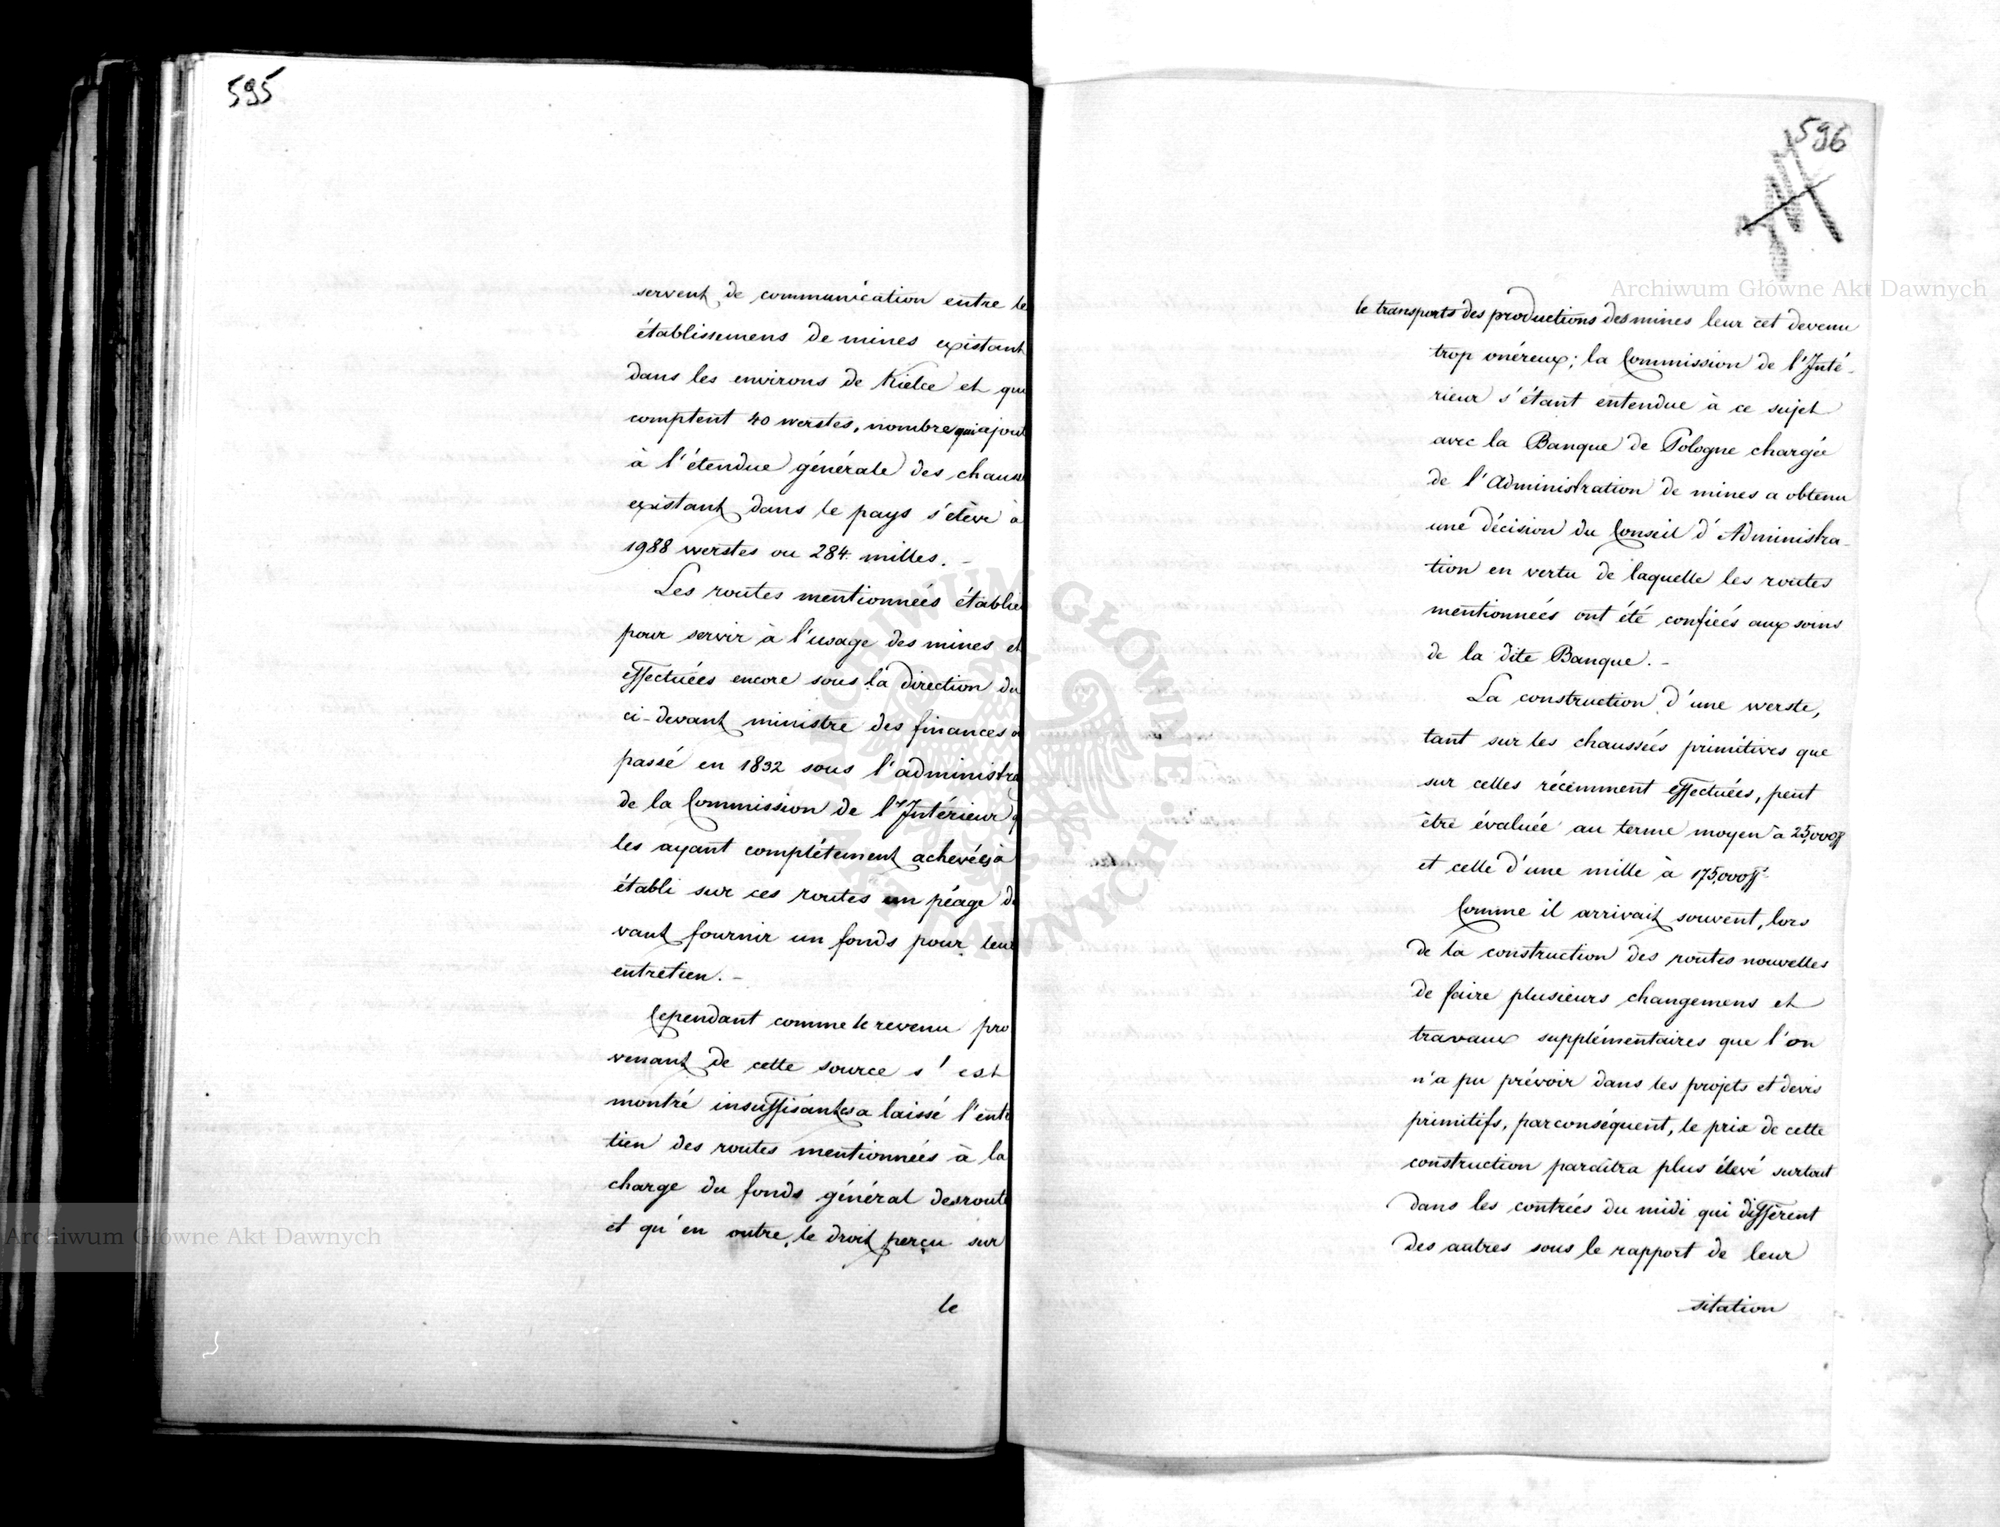 595
servent de communication entre le
établissemens de mines existant
dans les environs de Kielce et qu
comptent 40 werstes, nombre qui ajout
à l'étendue générale des chauss
existant dans le pays s'élève à
1988 werstes ou 284. milles. -
Les routes mentionnées établie
pour servir à l'usage des mines et
effectuées encore sous la direction du
ci-devant ministre des finances o
passé en 1832 sous l'administra
de la Commission de l'Intérieur q
les ayant complétement achevées à
établi sur ces routes un péage de
vant fournir un fonds pour leur
entretien. -
Cependant comme le revenu pro
venant de cette source s'est
montré insuffisant a laissé l'entre
tien des routes mentionnées à la
charge du fonds général des route
et qu'en outre, le droit perçu sur
le
596
le transports des productions des mines leur est devenu
trop onéreux; la Commission de l'Inté-
rieur s'étant entendue à ce sujet
avec la Banque de Pologne chargée
de l'Administration de mines a obtenu
une décision du Conseil d'Administra-
tion en vertu de laquelle les routes
mentionnées ont été confiées aux soins
de la dite Banque. -
La construction d'une werste,
tant sur les chaussées primitives que
sur celles récemment effectuées, peut
être évaluée au terme moyen à 25,000 ff
et celle d'une mille à 175,000 ff.
Comme il arrivait souvent, lors
de la construction des routes nouvelles
de faire plusieurs changemens et
travaux supplémentaires que l'on
n'a pu prévoir dans les projets et devis
primitifs, parconséquent, le prix de cette
construction paraîtra plus élevé surtout
dans les contrées du midi qui diffèrent
des autres sous le rapport de leur
sitation
Archiwum Główne Akt Dawnych
Archiwum Główne Akt Dawnych
ARCHIWUM GŁÓWNE AKT DAWNYCH